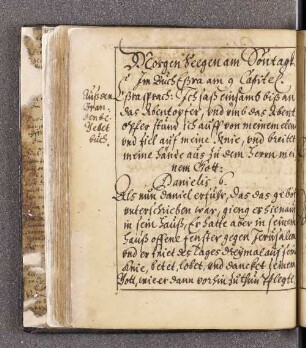 Morgen Seegen am Sontagk
Im Buch Eßra am 9 Capitel.
Außdem
Gebet
buch.
Eßra sprach: Ich saß einsamb biß an
das Abentopfer, vnd vmb das Abent
opfer stund ich auff von meinem elend
vnd fiel auf meine Knie, vnd breitet
meine hände aus zu dem herrn mei
nem Gott:
Danielis 6.
Als nun daniel erfuhr, das das gebot
vnterschrieben war, gieng er hienauf
in sein hauß, Er hatte aber in seinem
hauß offene fenster gegen Jerusalem
vnd er kniet des tages dreymal auf seine
Knie, betet, lobet, vnd dancket seinem
Gott, wie er dann vorhin zu thun pflegte